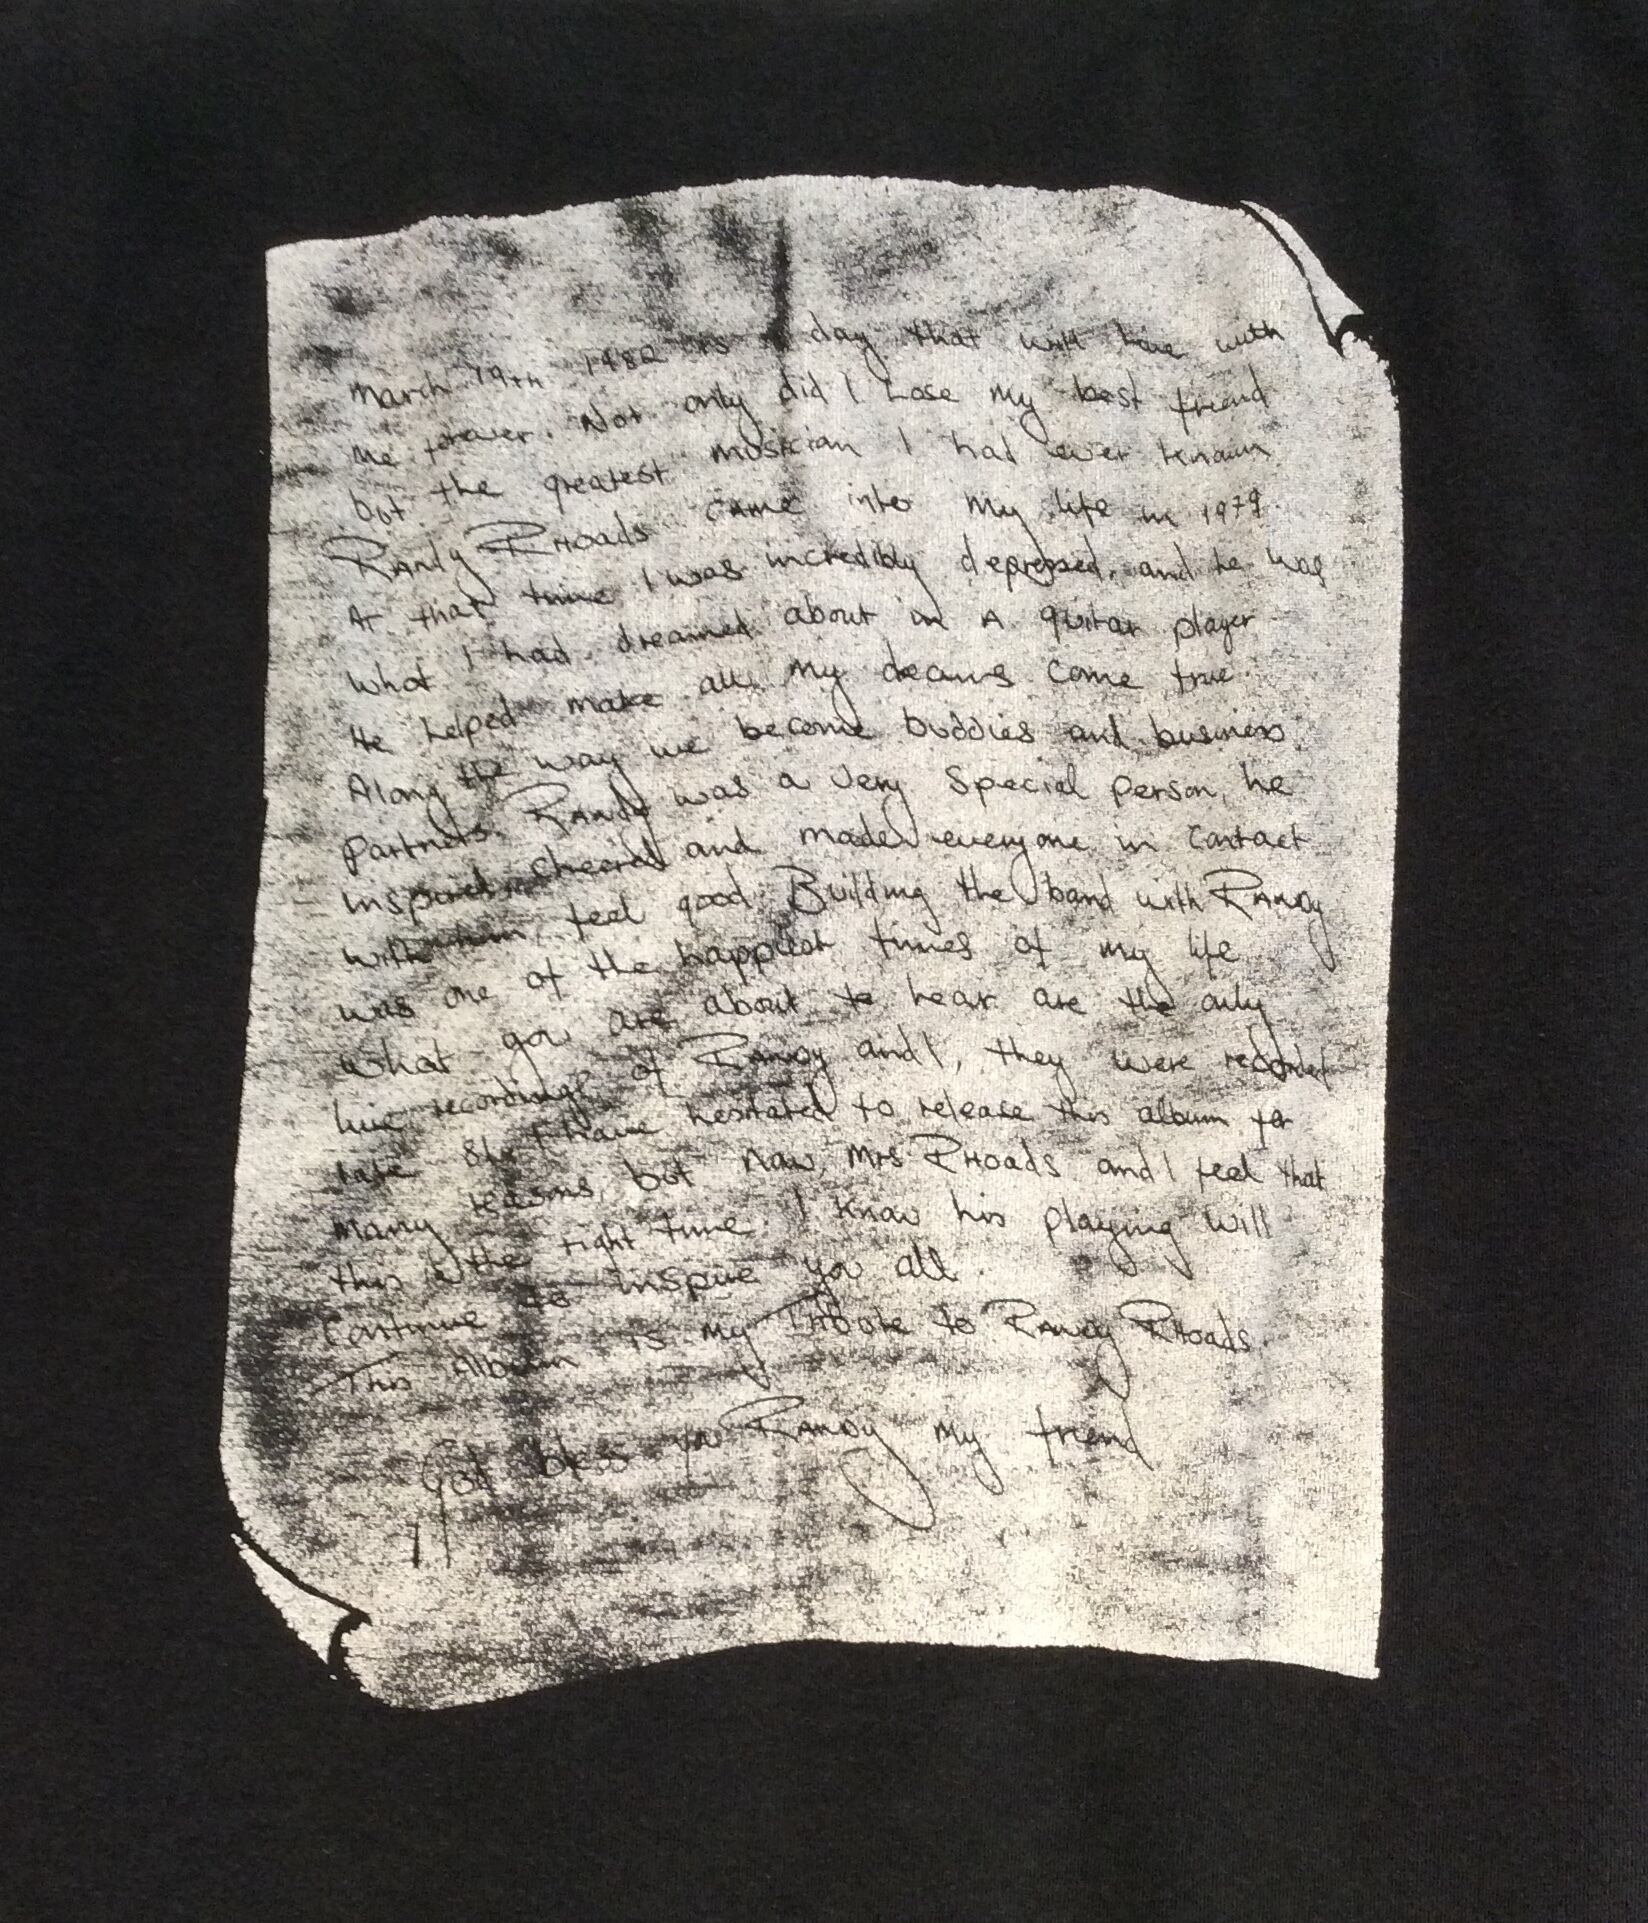 March 19th 1982 is a day that will live with
me forever. Not only did I Lose My best friend
but the greatest musician I had ever known
RANdy RHOads CAME into My life in 1979.
At that time I was incredibly depressed, and he was
what I had dreamed about in A guitar player
He helped make all My dreams come true.
Along the way we become buddies and business
Partners. RANdy was a very Special Person, he
inspired, cheered and made everyone in Contact
with him feel good Building the band with RANDy
was one of the happiest times of my life
what you are about to hear are the only
live recordings of RANDy and I, they were recorded
late 81. I have hesitated to release this album for
many reasons, but Now, Mrs RHOads and I feel that
this is the right time I know his playing will
continue to inspire you all.
This Album is my Tribute to RANDy RHoads.
God bless you RANDy my friend